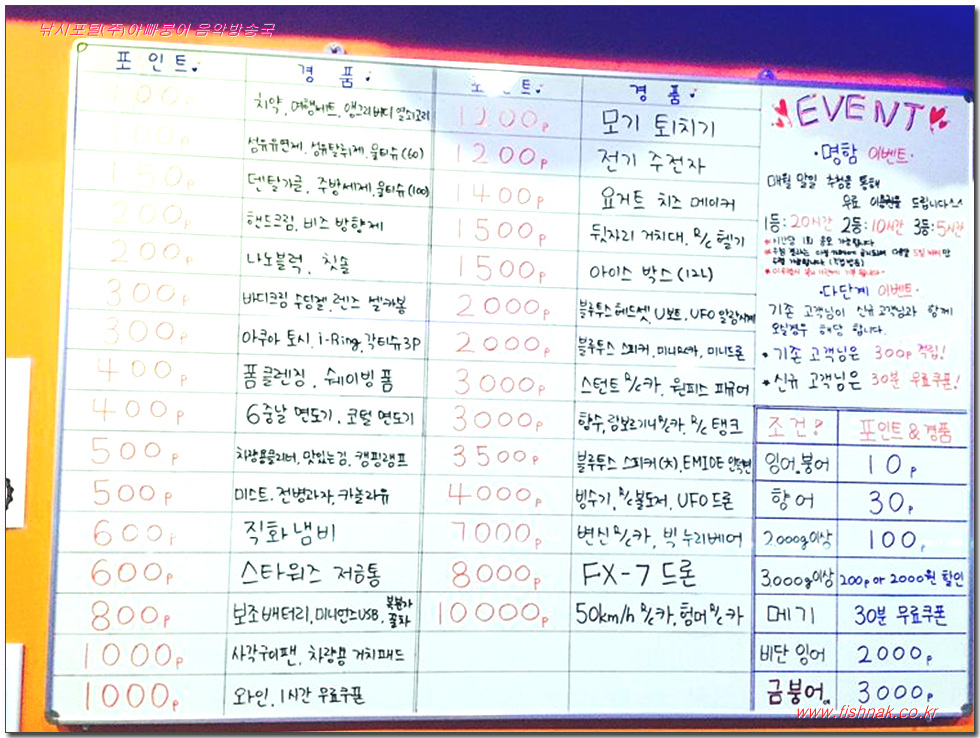 낚시포털(주)아빠붕어 음악방송국
포인트 경품 포인트 경품
100 치약, 여행세트,
100 섬유유연제, 섬유탈취제, 물티슈(60)
150 덴탈가글, 주방세제, 물티슈(100)
200p 핸드크림, 비즈 방향제
200p 나노블럭, 칫솔
300p 바디크림 수딩젤, 렌즈 셀카봉
300p 아쿠아 토시, i-Ring, 각티슈3P
400p 폼클렌징, 쉐이빙폼
400p 6중날 면도기, 코털 면도기
500p 맛있는김, 캠핑램프
500p 미스트, 전병과자, 카놀라유
600p 직화냄비
600p 스타워즈 저금통
800p 보조배터리, 미니언즈USB, 볶음가 꿀차
1000p 사각구이팬, 차량용 거치패드
1000p 와인, 1시간 무료쿠폰
1200p 모기 퇴치기
1200p 전기 주전자
1400p 요거트 치즈 메이커
1500p 뒷자리 거치대, R/C 헬기
1500p 아이스 박스(12L)
2000p 블루투스 헤드셋, U보트, UFO 알람시계
2000p 블루투스 스피커, 미니R/C카, 미니드론
3000p 스턴트 R/C카, 원피스 피규어
3000p 향수, 람보르기니 R/C카, R/C 탱크
3500p 블루투스 스피커(大), EMIDE
4000p 빙수기, R/C불도저, UFO 드론
7000p 변신 R/C카, 빅 누리베어
8000p FX-7 드론
10000p 50km/h R/C카, 험머 R/C카
EVENT
·명함 이벤트·
매월 말일 추첨을 통해
무료 이용권을 드립니다^^
1등: 20시간 2등: 10시간 3등: 5시간
·다단계 이벤트·
기존 고객님이 신규고객님과 함께
오실경우 해당 합니다.
• 기존 고객님은 300p 적립!
• 신규 고객님은 30분 무료쿠폰!
조건? 포인트&경품
잉어.붕어 10p
향어 30p
2000g이상 100p
3000g이상 200p or 2000원 할인
메기 30분 무료쿠폰
비단 잉어 2000p
금붕어 3000p
www.fishnak.co.kr